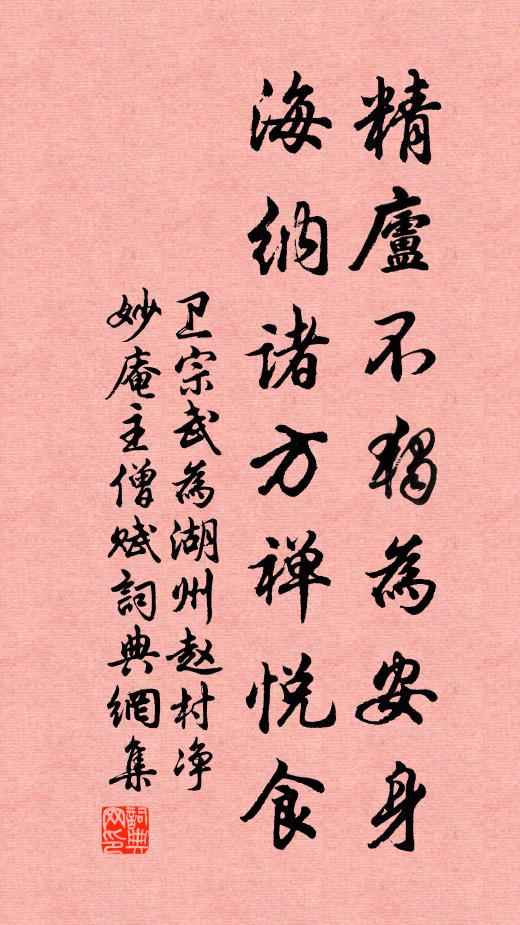 精廬不独為安身
海纳諸方禅悦食
卫宗武為湖州赵村净
妙庵主僧赋詞典網集
詞典
网印